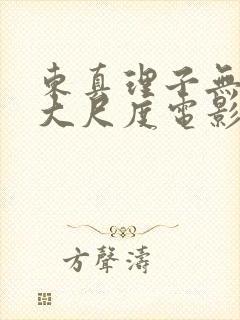 東真理子無
大尺度電影
方聲濤